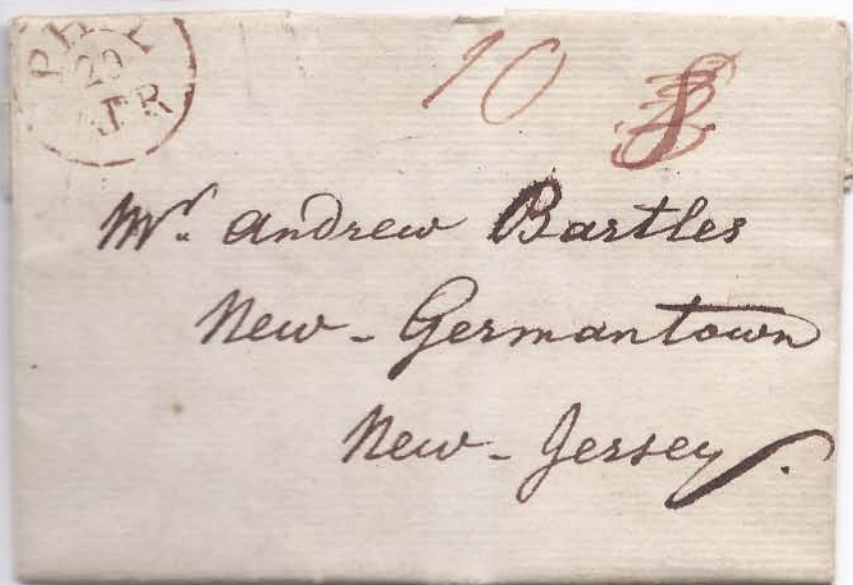 PHI
20
10
Mr. Andrew Bartles
New-Germantown
New-Jersey.